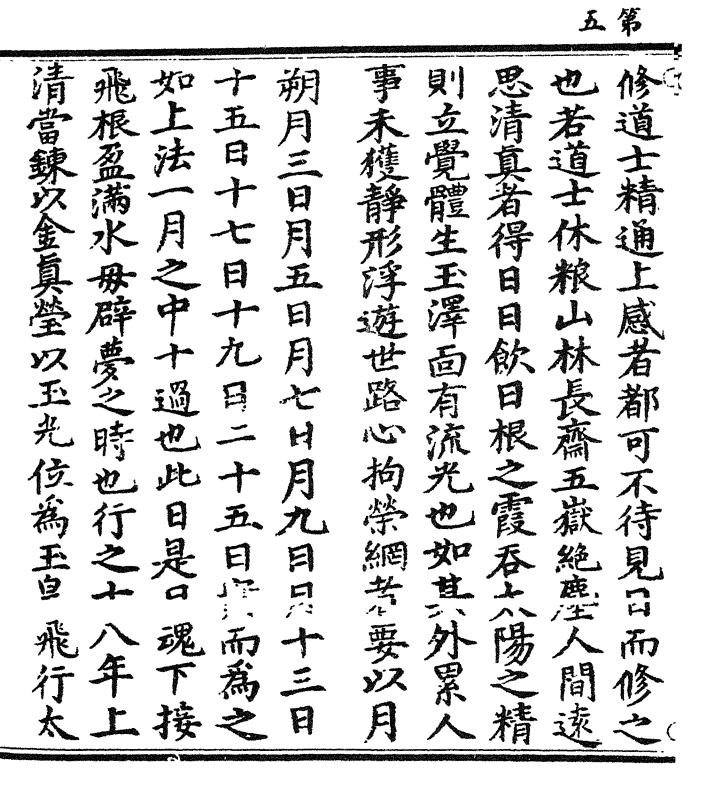 第五
修道士精通上感者都可不待見日而修之
也若道士休粮山林長齋五嶽絶塵人間遠
思清真者得日日飲日根之霞吞太陽之精
則立覺體生玉澤面有流光也如其外累人
事未獲靜形浮遊世路心拘榮網者要以月
朔月三日月五日月七日月九日月十三日
十五日十七日十九日二十五日而為之
如上法一月之中十過也此日是日魂下接
飛根盈滿水母辟夢之時也行之十八年上
清當鍊以金真瑩以玉光位為玉皇飛行太